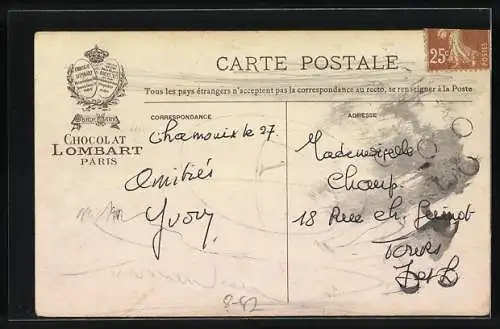 CARTE POSTALE
25c
POSTES
Tous les pays étrangers n'acceptent pas la correspondance au recto, se renseigner à la Poste
CHOCOLAT
LOMBART
PARIS
CORRESPONDANCE
ADRESSE
Chamonix le 27
Amitiés
Yvon
Mademoiselle
Champ
18 Rue Ch. Guinot
Tours
I et L